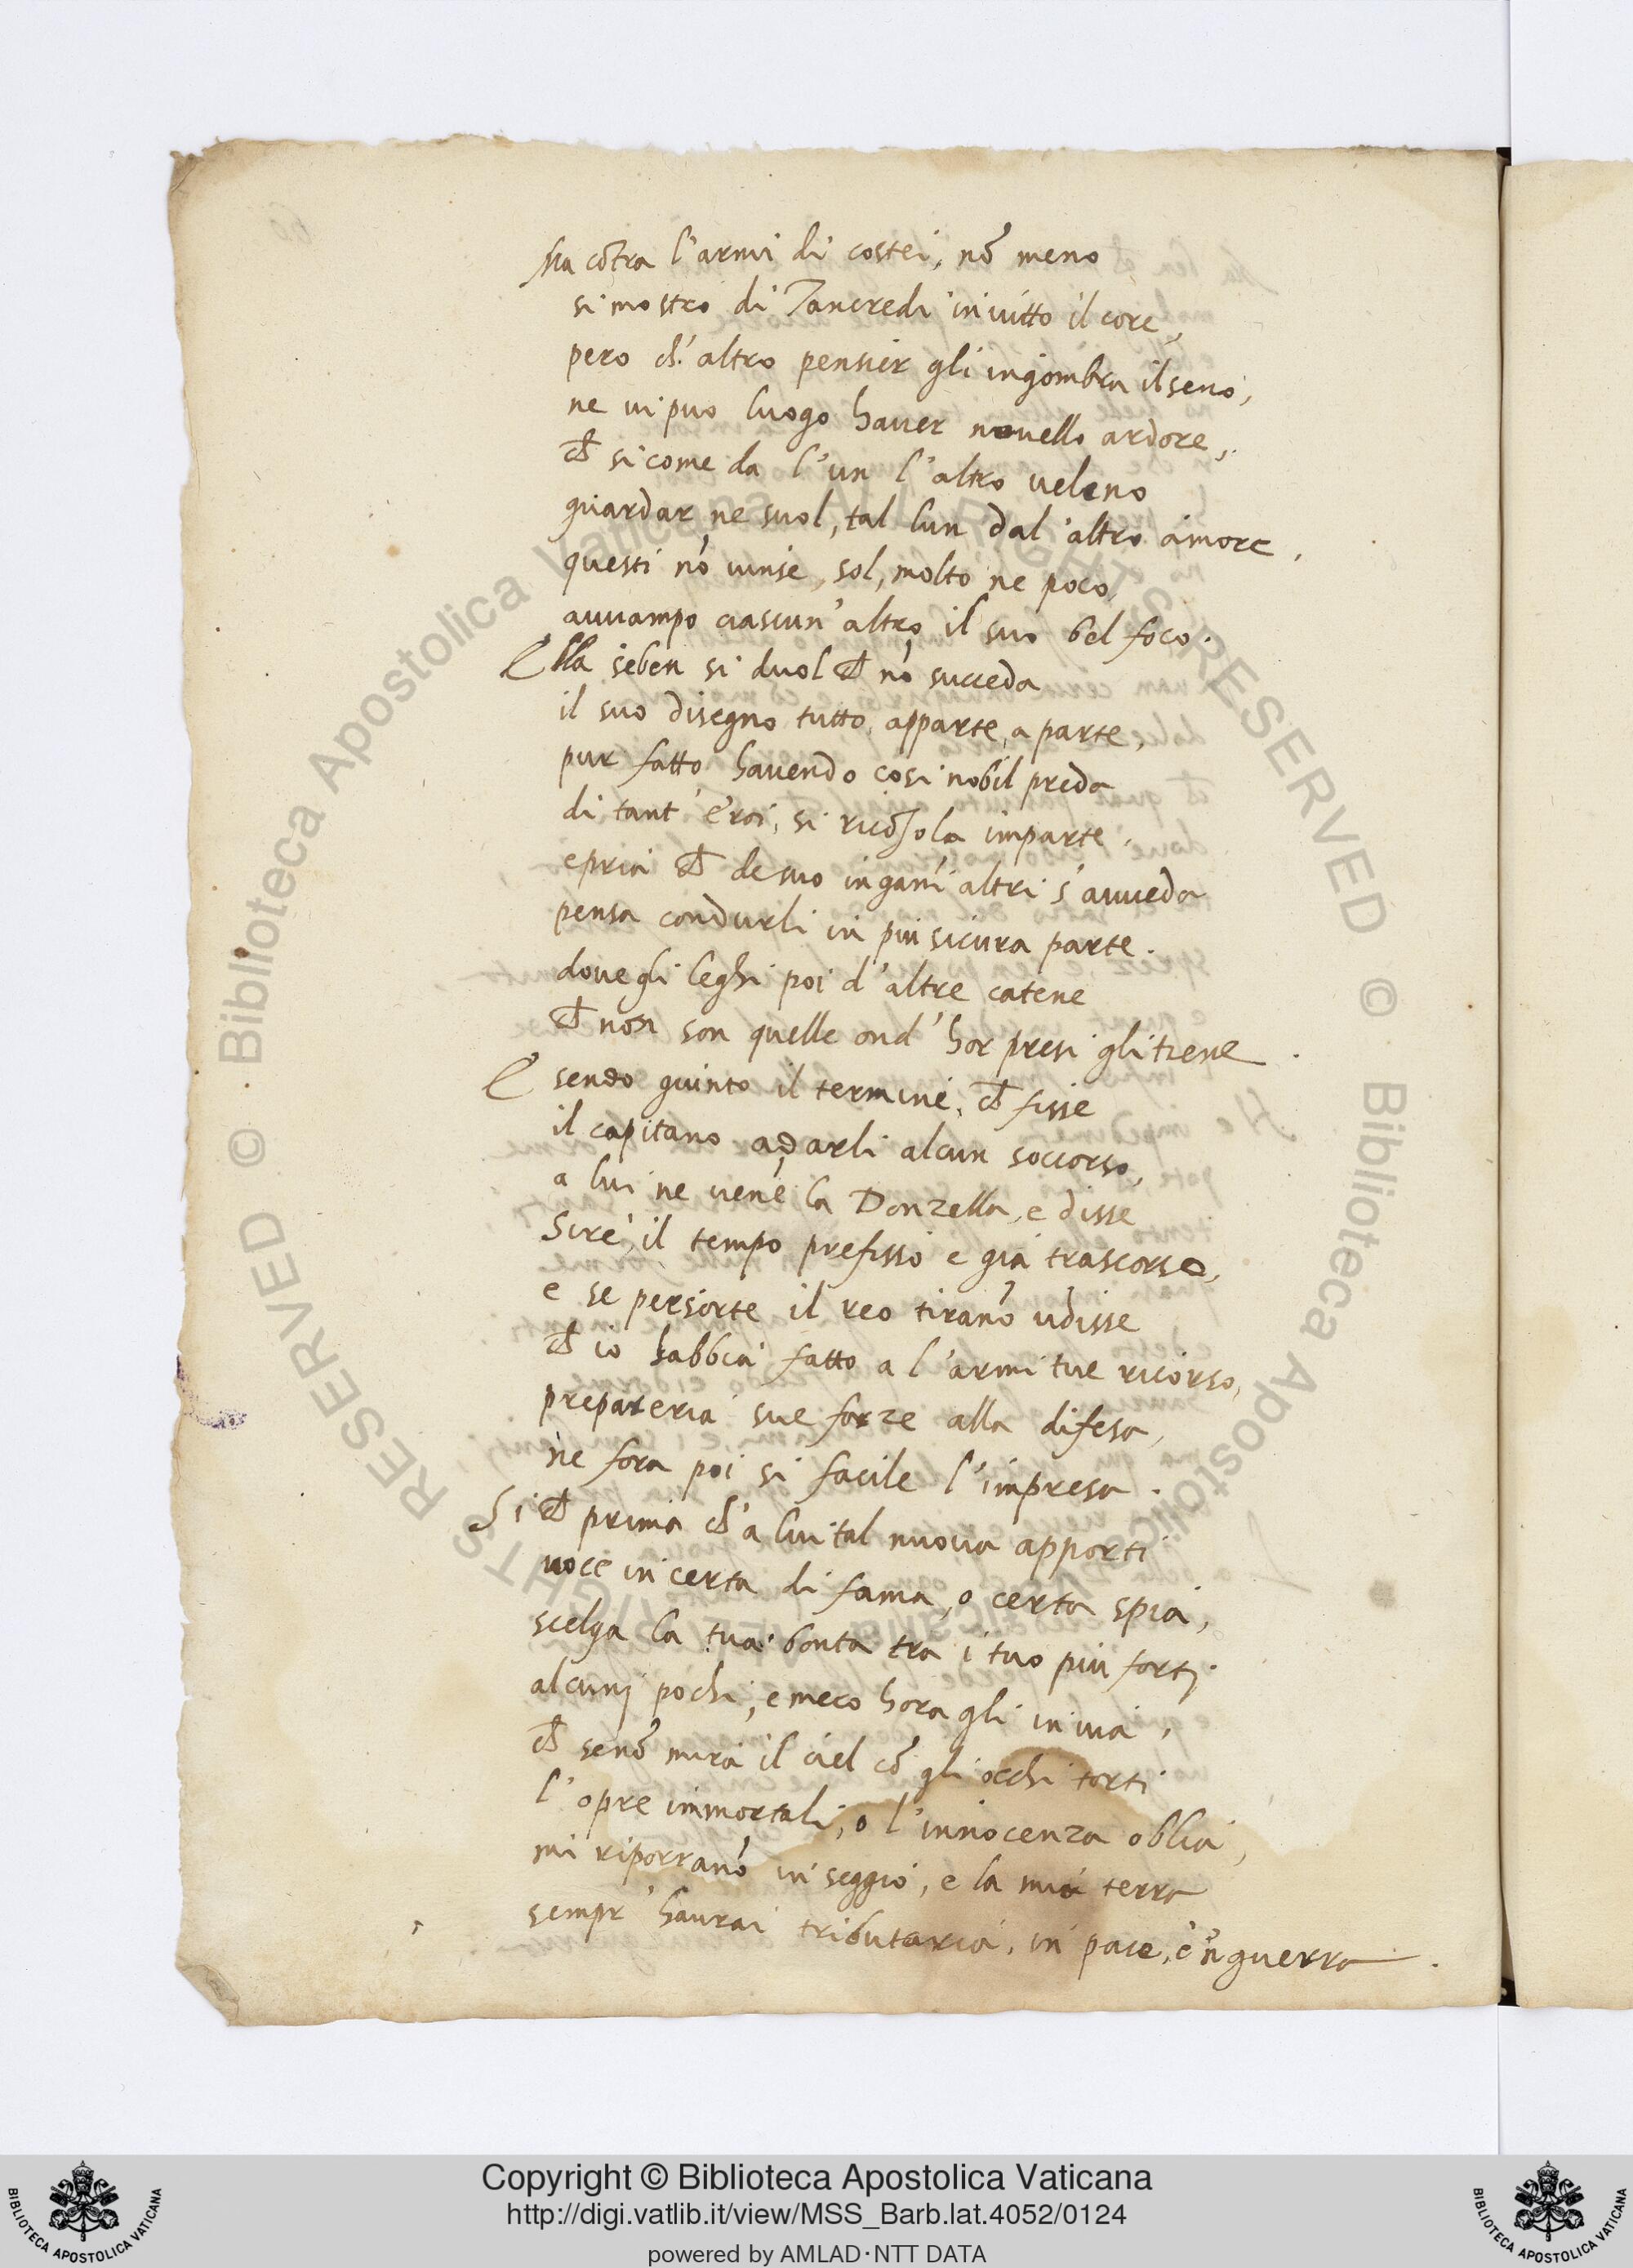 Ma cõtra l'armi di costei, nõ meno
si mostrò di Tancredi invitto il core,
pero ch' altro pensier gli ingombra il seno,
ne vi puo luogo haver novello ardore,
che si come da l'un l'altro veleno
guardar ne suol, tal lun dal altro amore,
questi nõ vinse, sol, molto ne poco
avvampo ciascun' altro il suo bel foco.
Ella seben si duol che nõ succeda
il suo disegno tutto apparte, a parte,
pur fatto havendo cosi nobil preda
di tant' eroi, si ricõsola imparte.
e pria che de suo inganĩ altri s'avveda
pensa condurli in piu sicura parte.
dove gli leghi poi d'altre catene
che non son quelle ond' hor presi gli tiene.
E sendo giunto il termine, che fisse
il capitano a darli alcun soccorso,
a lui ne venẽ la Donzella, e disse
Sire, il tempo prefisso e gia trascorso,
e se persorte il reo tiranõ udisse
che io habbia fatto a l'armi tue ricorso,
prepareria sue forze alla difesa,
ne fora poi si facile l'impresa.
Si che prima ch'a lui tal nuova apporti
voce in certa di fama, o certa spia,
scelga la tua bonta tra i tuo piu forti
alcuni pochi, e meco hora gli in via,
che senõ mira il ciel cõ gli occhi torti
l'opre immortali, o l'innocenza oblia,
mi riporranõ in seggio, e la mia terra
sempr' haurai tributaria, in pace, e 'n guerra.
© Biblioteca Apostolica Vaticana ALL RIGHTS RESERVED © Biblioteca Apostolica Vaticana ALL RIGHTS RESERVED
Copyright © Biblioteca Apostolica Vaticana
http://digi.vatlib.it/view/MSS_Barb.lat.4052/0124
powered by AMLAD·NTT DATA
BIBLIOTECA APOSTOLICA VATICANA
BIBLIOTECA APOSTOLICA VATICANA